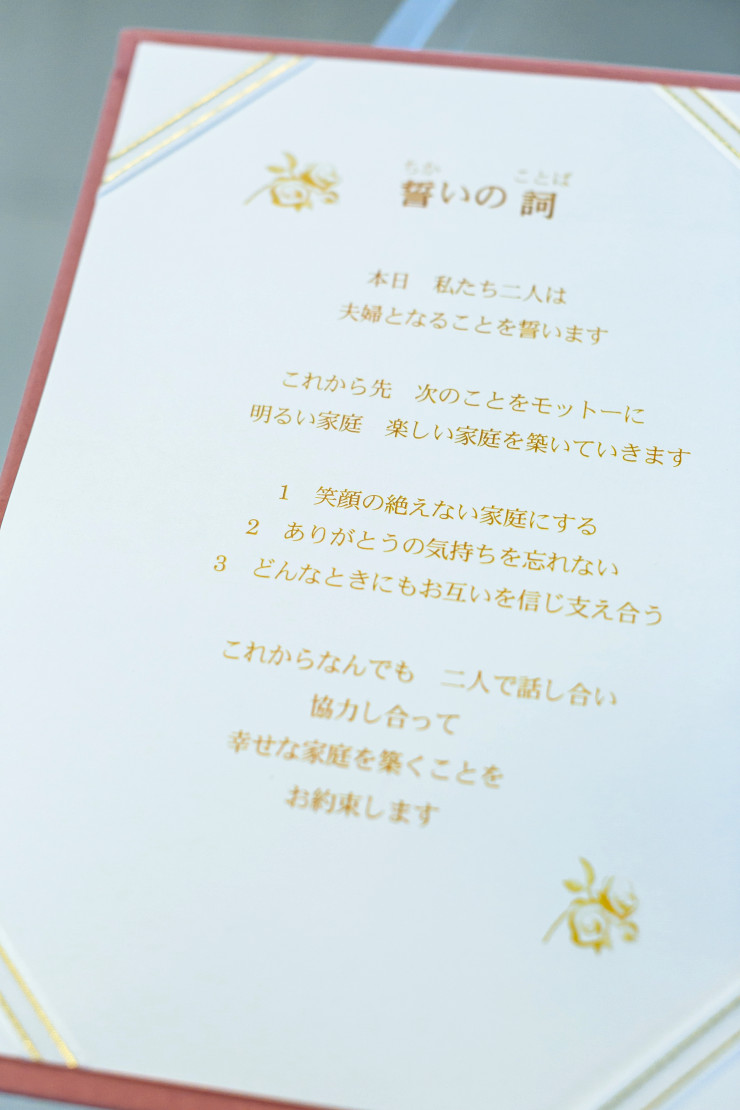 誓いの詞
ちか ことば
本日　私たち二人は
夫婦となることを誓います
これから先　次のことをモットーに
明るい家庭　楽しい家庭を築いていきます
1　笑顔の絶えない家庭にする
2　ありがとうの気持ちを忘れない
3　どんなときにもお互いを信じ支え合う
これからなんでも　二人で話し合い
協力し合って
幸せな家庭を築くことを
お約束します